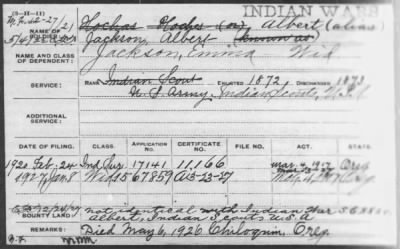 (3-1141)
INDIAN WARS
NAME OF SOLDIER:
Hochas Albert (alias)
Jackson, Albert
NAME AND CLASS OF DEPENDENT:
Jackson, Emma Wid
SERVICE:
RANK Indian Scout ENLISTED 1872, DISCHARGED 1873
U.S. Army, Indian Scouts,
ADDITIONAL SERVICE:
DATE OF FILING. CLASS. APPLICATION NO. CERTIFICATE NO. FILE NO. ACT. STATE.
1920 Feb. 24 Ind Sur 17141 11,166 Mar. 4, 1917 Oreg
1927 Jan 8 Wid 1567859 A13-23-27 Oreg
BOUNTY LAND
not identical with Indian War
Albert, Indian Scouts U.S.A
REMARKS:
Died May 6, 1926 Chiloquin, Oreg.